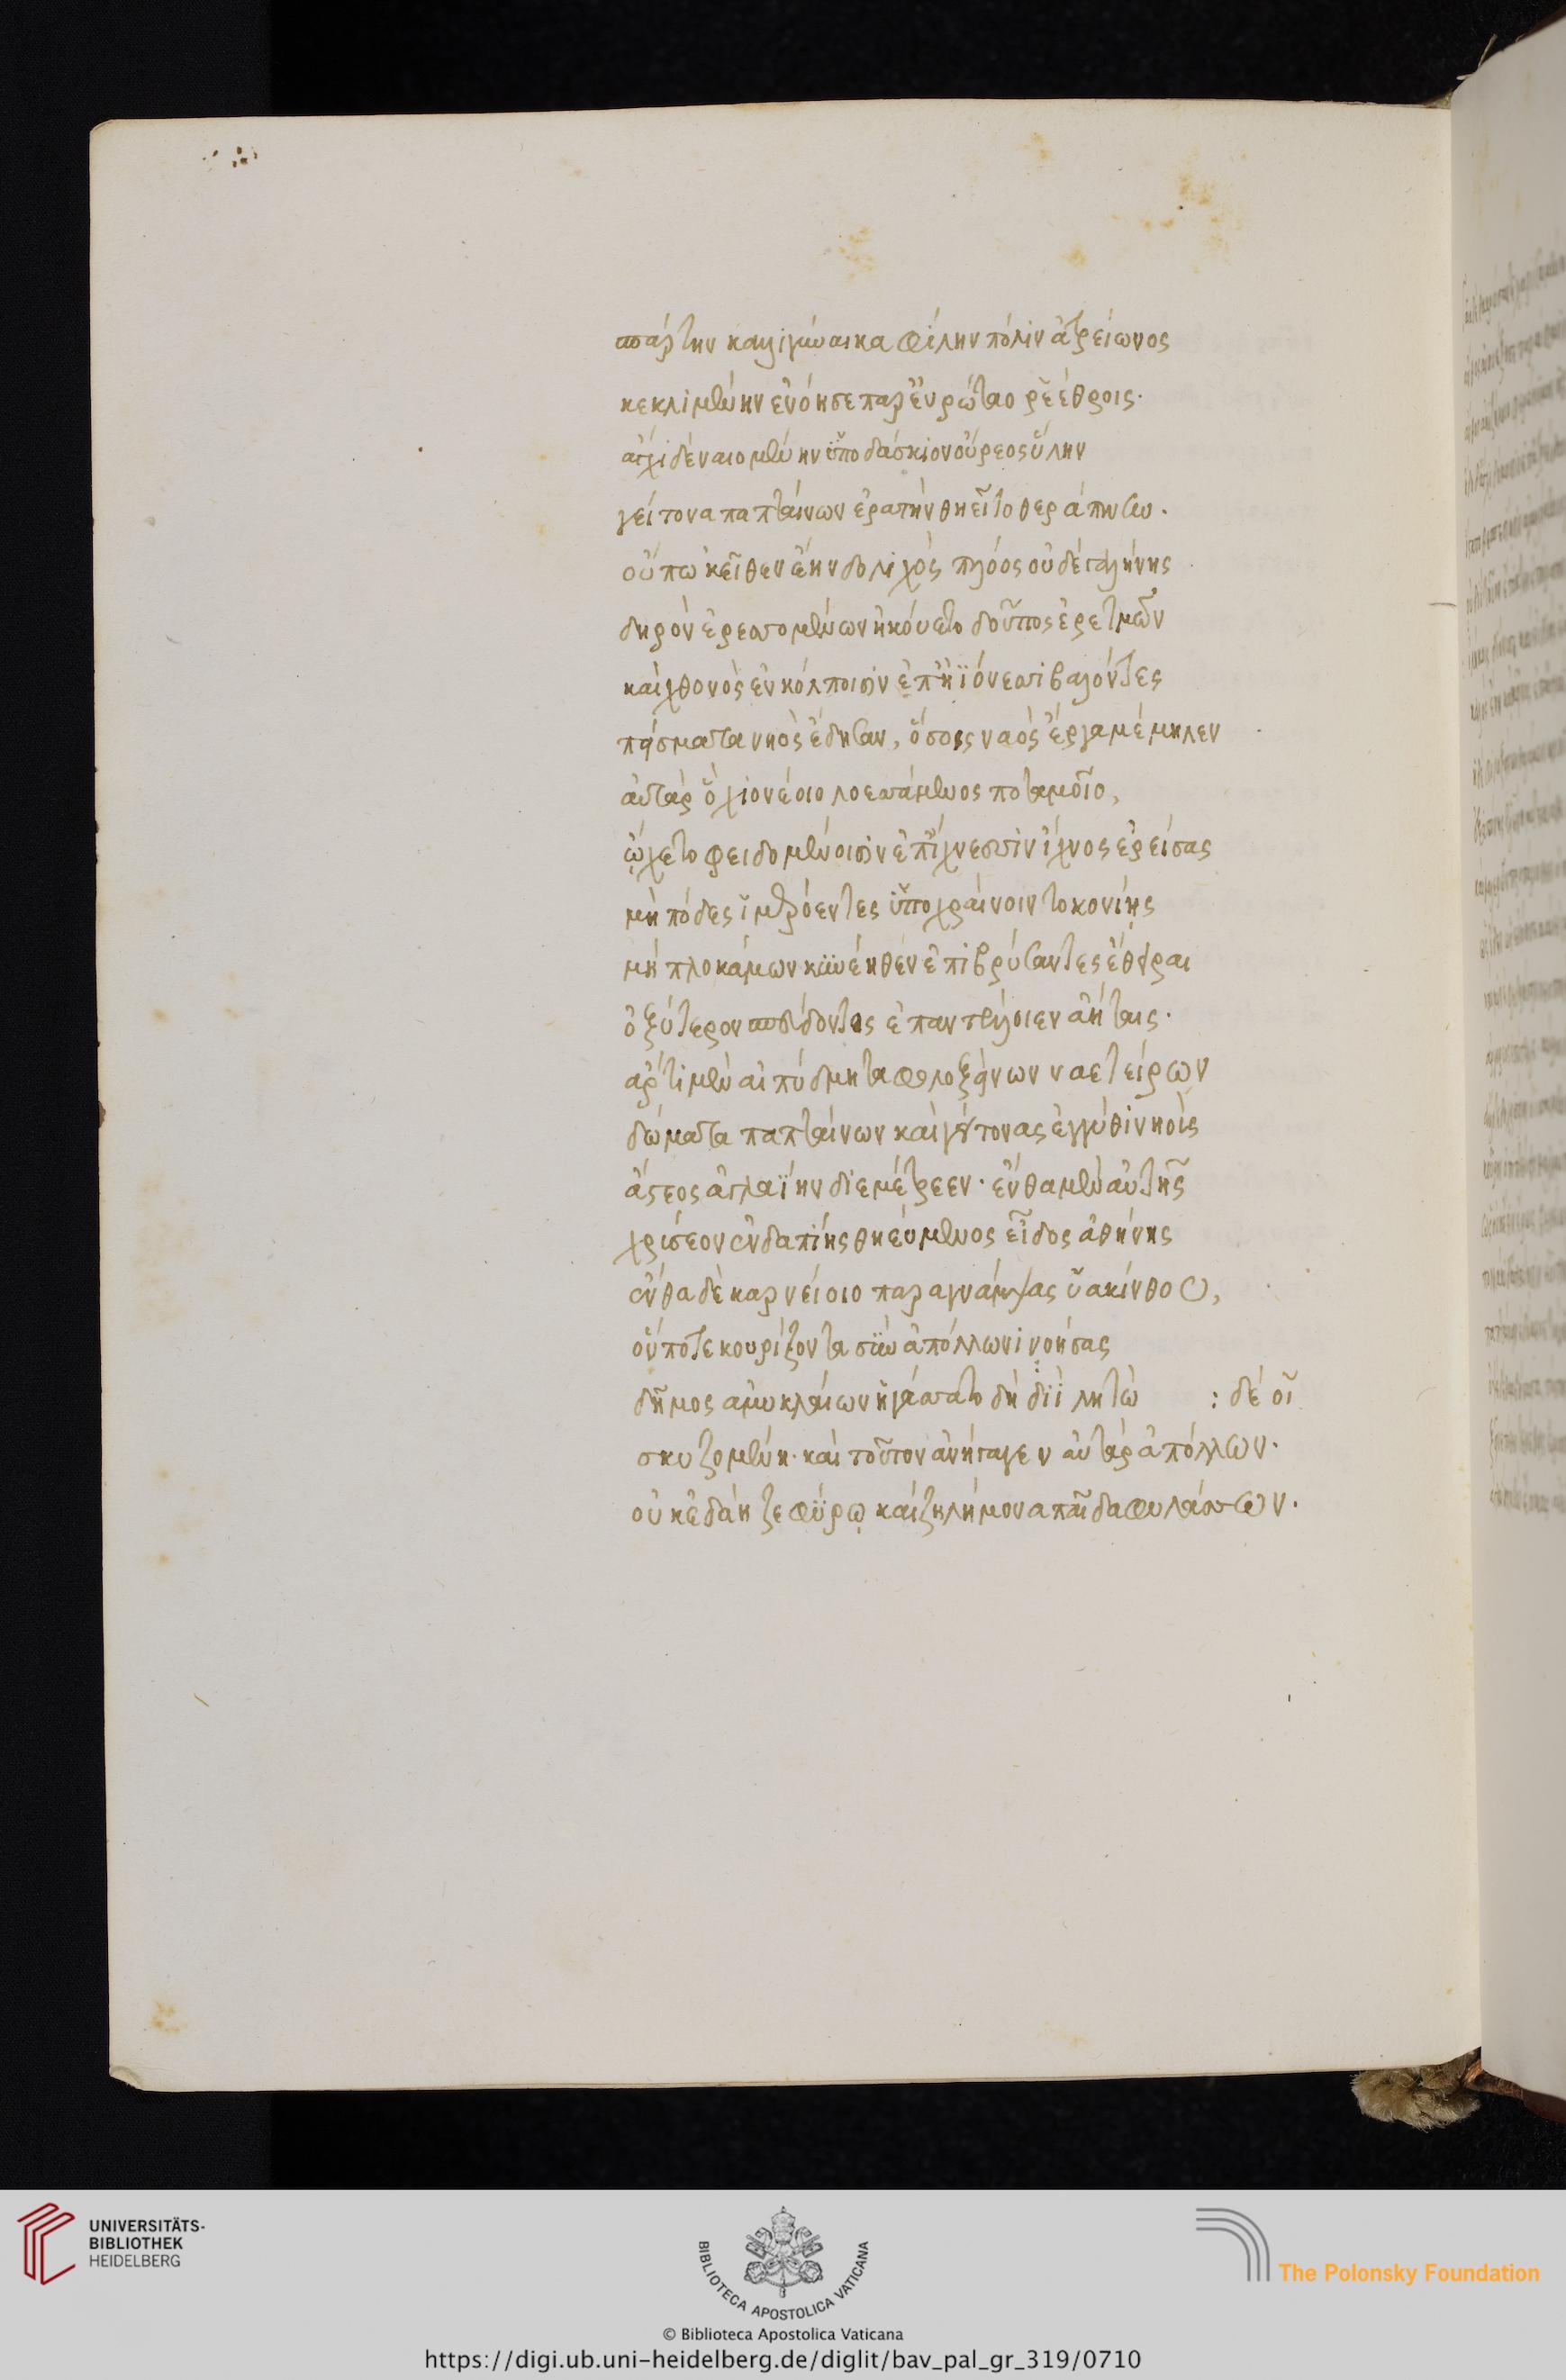 σπάρτην καλλιγύναικα φίλην πόλιν ἀτρείωνος
κεκλιμένην ἐνόησε παρ' εὐρώταο ῥεέθροις·
ἄγχι δὲ ναιομένην ὑπὸ δάσκιον οὔρεος ὕλην
γείτονα παπταίνων ἐρατὴν θηεῖτο θεράπνην.
οὔπω κεῖθεν ἔην δολιχὸς πλόος οὐδὲ γαλήνης
δηρὸν ἐρεσσομένων ἠκούετο δοῦπος ἐρετμῶν
καὶ χθονὸς ἐν κόλποισιν ἐπ' ἠϊόνεσσι βαλόντες
πείσματα νηὸς ἔδησαν, ὅσοις ναὸς ἔργα μέμηλεν
αὐτὰρ ὃ χιονέοιο λοεσσάμενος ποταμοῖο,
ᾤχετο φειδομένοισιν ἐπ' ἴχνεσσιν ἴχνος ἐρείσας
μὴ πόδες ἱμερόεντες ὑποχραίνοιντο κονίης
μὴ πλοκάμων κυνέηθεν ἐπιβρύσαντες ἔθειραι
ὀξύτερον σπεύδοντος ἐπαντέλλοιεν ἀήταις·
ἄρτι μὲν αἰπύδμητα φιλοξείνων ναετείρων
δώματα παπταίνων καὶ γείτονας ἐγγύθι νηοὺς
ἄστεος ἀγλαΐην διεμέτρεεν· ἔνθα μὲν αὐτῆς
χρύσεον ἐνδαπίης θηεύμενος εἶδος ἀθήνης
ἔνθα δὲ καρνείοιο παραγνάμψας ὑακίνθου,
ὅν ποτε κουρίζοντα σὺν ἀπόλλωνι νοήσας
δῆμος ἀμυκλαίων ἠγάσσατο δὴ διὶ λητὼ : δέ οἷ
σκυζομένη· καὶ τοῦτον ἀνήγαγεν αὐτὰρ ἀπόλλων·
οὐκ ἐδάη ζεφύρῳ καὶ ζηλήμονα παῖδα φυλάσσων.
UNIVERSITÄTS-
BIBLIOTHEK
HEIDELBERG
BIBLIOTECA APOSTOLICA VATICANA
The Polonsky Foundation
© Biblioteca Apostolica Vaticana
https://digi.ub.uni-heidelberg.de/diglit/bav_pal_gr_319/0710